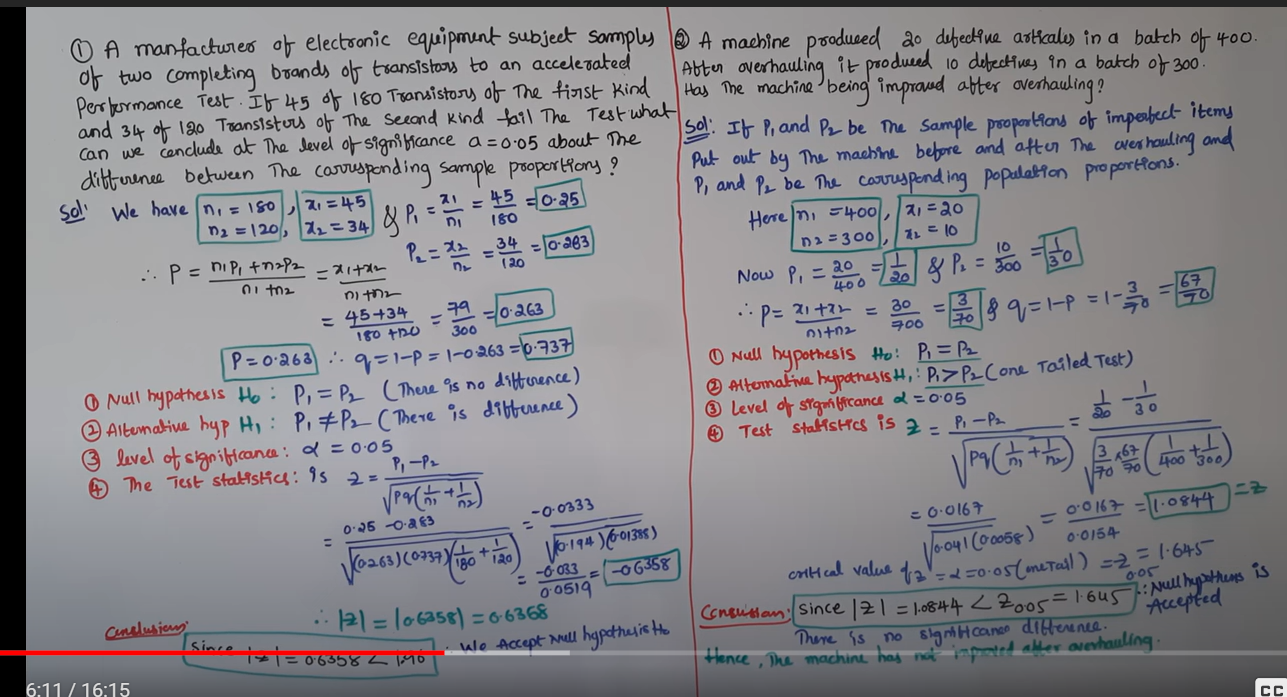 ① A manfacturer of electronic equipment subject samples
of two completing brands of transistors to an accelerated
Performance Test. If 45 of 180 Transistors of The first Kind
and 34 of 120 Transistors of The Second Kind fail The Test what
can we conclude at The level of significance a = 0.05 about The
difference between The corrusponding Sample proportions ?
Sol: We have n₁ = 180, x₁ = 45 & P₁ = x₁/n₁ = 45/180 = 0.25
n₂ = 120, x₂ = 34
P₂ = x₂/n₂ = 34/120 = 0.283
∴ P = n₁P₁ + n₂P₂ / n₁ + n₂ = x₁+x₂ / n₁+n₂
= 45+34 / 180+120 = 79/300 = 0.263
P = 0.263 ∴ q = 1-P = 1-0.263 = 0.737
① Null hypothesis H₀ : P₁ = P₂ (There is no difference)
② Alternative hyp H₁ : P₁ ≠ P₂ (There is difference)
③ level of significance : α = 0.05
④ The Test statistics : is Z = P₁-P₂ / √Pq(1/n₁ + 1/n₂)
= 0.25 - 0.283 / √(0.263)(0.737)(1/180 + 1/120) = -0.0333 / √(0.194)(0.01388)
= -0.033 / 0.0519 = -0.6358
∴ |z| = |0.6358| = 0.6368
Conclusion:
Since |z| = 0.6358 < 1.96 ∴ We Accept Null hypothesis H₀
② A machine produced 20 defective articales in a batch of 400.
After overhauling it produced 10 defectives in a batch of 300.
Has The machine being improved after overhauling ?
Sol: If P₁ and P₂ be The Sample proportions of imperfect items
Put out by The machine before and after The overhauling and
P₁ and P₂ be The corrusponding population proportions.
Here n₁ = 400, x₁ = 20
n₂ = 300, x₂ = 10
Now P₁ = 20/400 = 1/20 & P₂ = 10/300 = 1/30
∴ P = x₁+x₂ / n₁+n₂ = 30/700 = 3/70 & q = 1-P = 1-3/70 = 67/70
① Null hypothesis H₀ : P₁ = P₂
② Alternative hypothesis H₁ : P₁ > P₂ (one Tailed Test)
③ Level of significance α = 0.05
④ Test statistics is Z = P₁-P₂ / √Pq(1/n₁ + 1/n₂) = 1/20 - 1/30 / √3/70 × 67/70 (1/400 + 1/300)
= 0.0167 / √0.041(0.0058) = 0.0167 / 0.0154 = 1.0844 = Z
critical value of z = α = 0.05 (one Tail) = Z0.05 = 1.645
Conclusion: Since |z| = 1.0844 < Z0.05 = 1.645 ∴ Null hypothesis is
Accepted
There is no significance difference.
Hence, The machine has not improved after overhauling.
6:11 / 16:15
CC